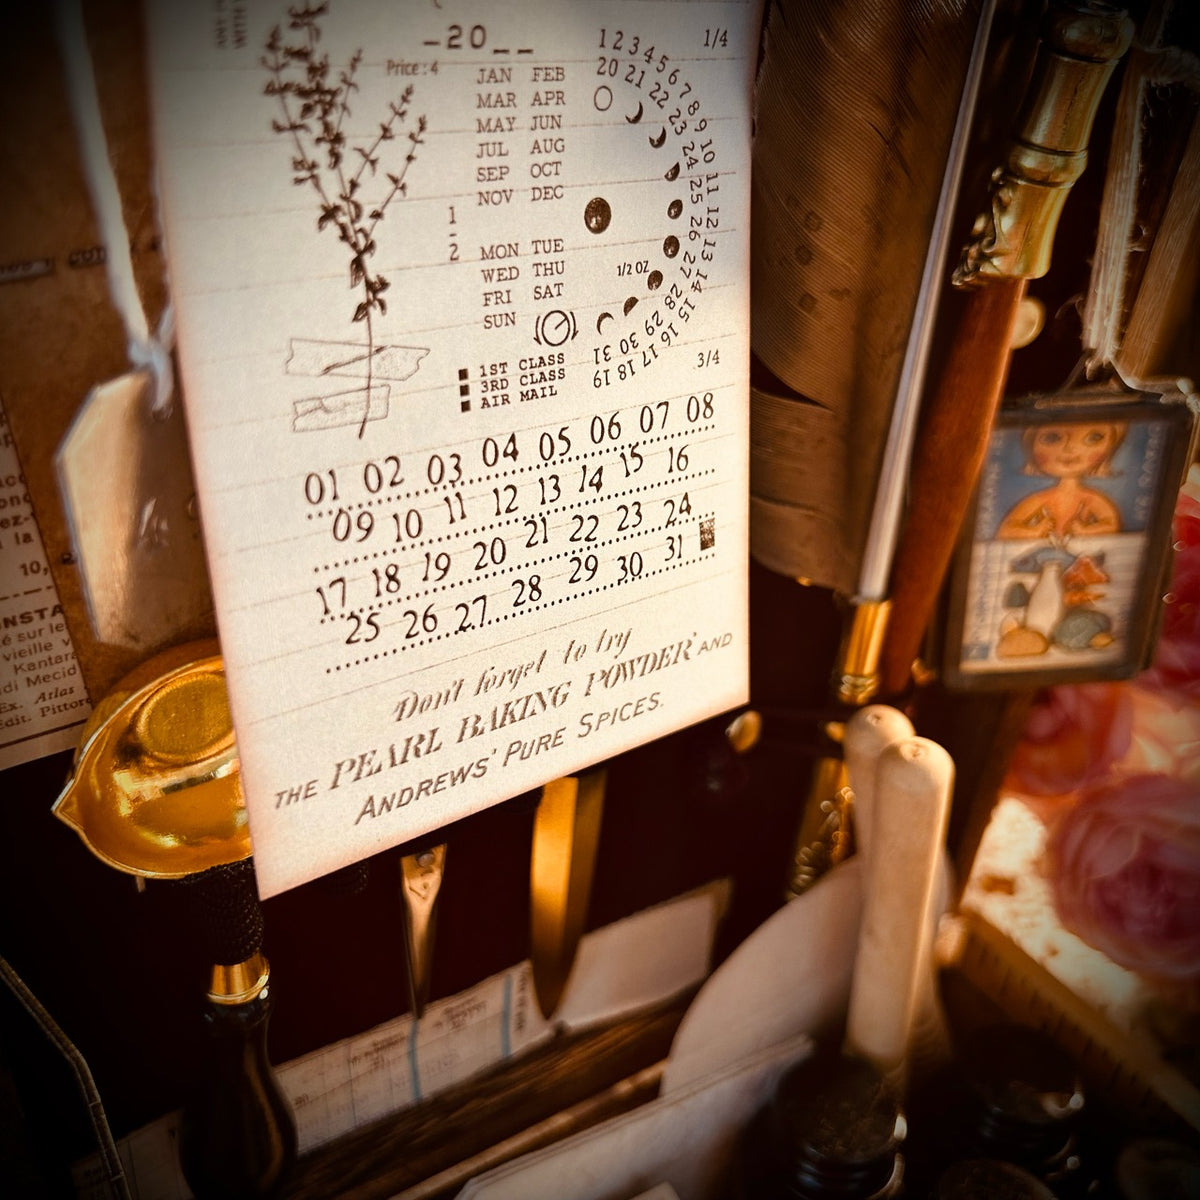 -20__
Price: 4
JAN FEB
MAR APR
MAY JUN
JUL AUG
SEP OCT
NOV DEC
1
-
2
MON TUE
WED THU
FRI SAT
SUN
1 2 3 4 5 6 7 8 9 10 11 12 13 14 15 16 17 18 19
20 21 22 23 24 25 26 27 28 29 30 31
1/4
1/2 OZ
3/4
1ST CLASS
3RD CLASS
AIR MAIL
01 02 03 04 05 06 07 08
09 10 11 12 13 14 15 16
17 18 19 20 21 22 23 24
25 26 27 28 29 30 31
Don't forget to try
THE PEARL BAKING POWDER AND
ANDREWS' PURE SPICES.
10,
INSTA
é sur le
vieille v
Kantara
di Mecid
Ex. Atlas
Edit. Pittor